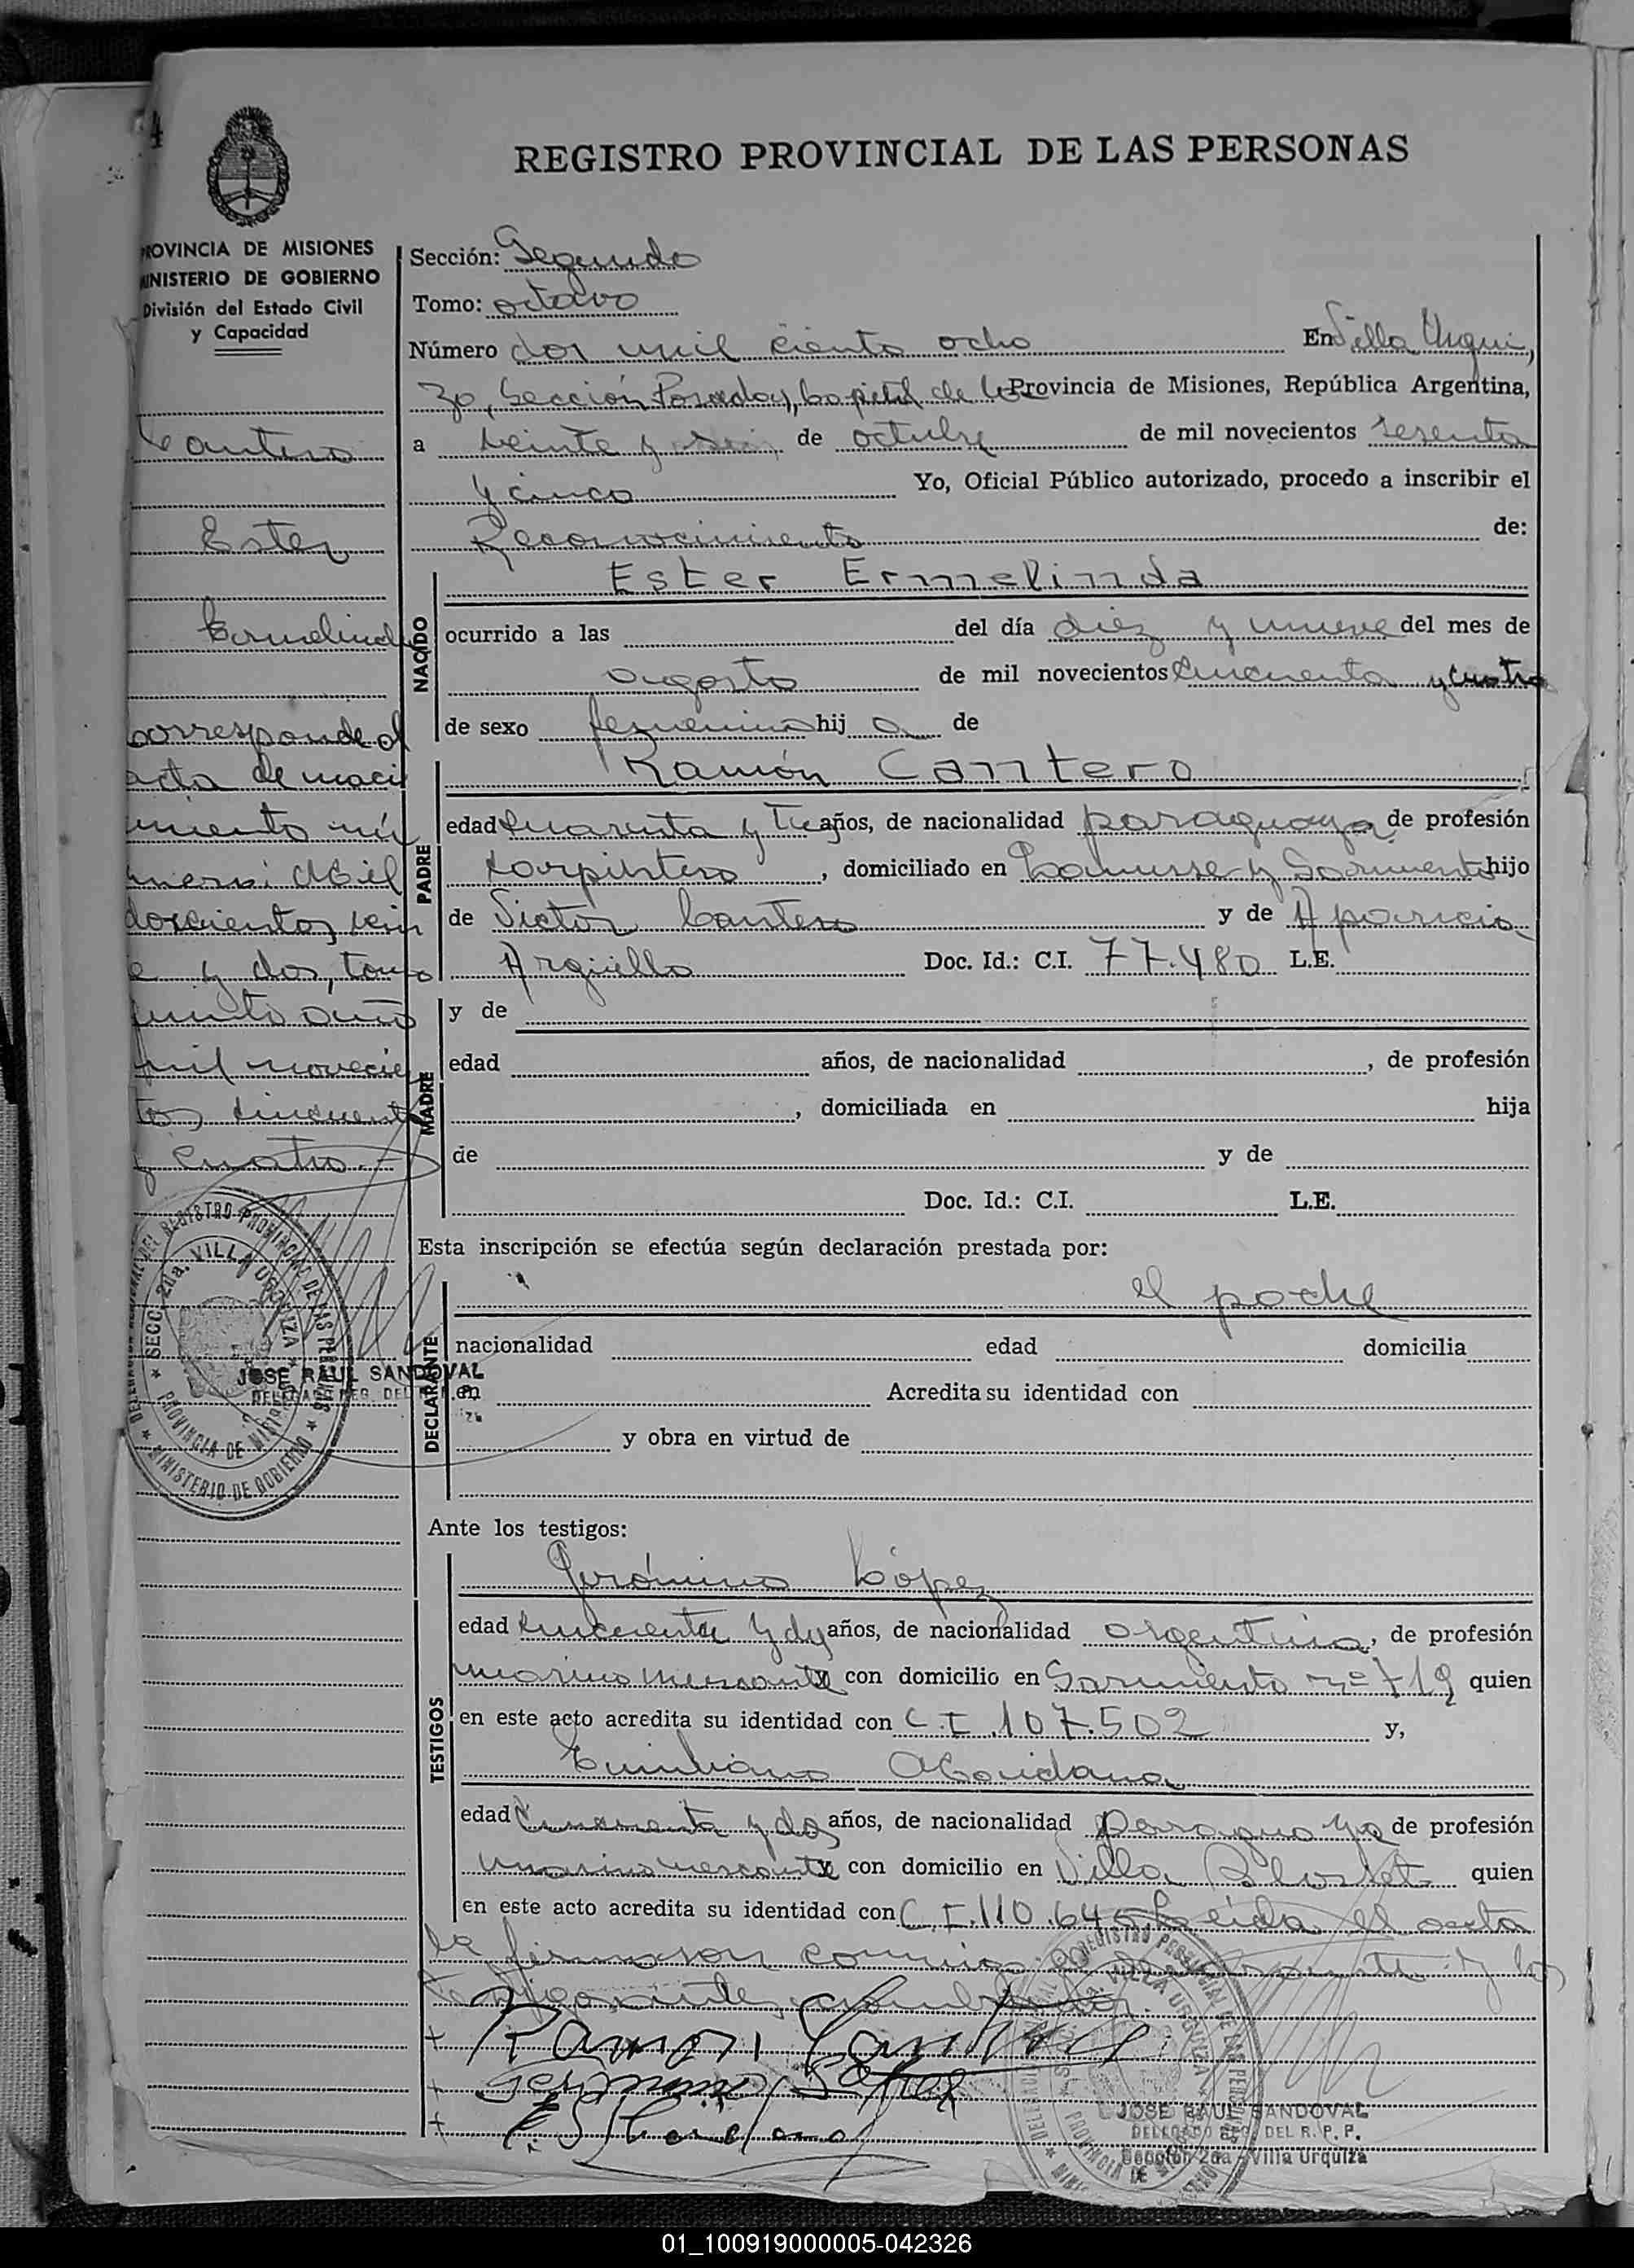 REGISTRO PROVINCIAL DE LAS PERSONAS
PROVINCIA DE MISIONES
MINISTERIO DE GOBIERNO
División del Estado Civil
y Capacidad
Cantero
Ester
Ermelinda
corresponde al
acta de naci
miento nú
mero: Mil
doscientos vein
e y dos, tomo
quinto año
mil novecien
tos cincuenta
y cuatro.-
Sección: Segunda
Tomo: octavo
Número dos mil ciento ocho En Villa Urqui,
za, Sección Posadas, Capital de la Provincia de Misiones, República Argentina,
a veinte y seis de octubre de mil novecientos sesenta
y cinco Yo, Oficial Público autorizado, procedo a inscribir el
Reconocimiento de:
NACIDO
Ester Ermelinda
ocurrido a las del día diez y nueve del mes de
agosto de mil novecientos cincuenta y cuatro
de sexo femenino hij a de
PADRE
Ramón Cantero
edad cuarenta y tres años, de nacionalidad paraguaya de profesión
carpintero, domiciliado en y Sarmiento hijo
de Victor Cantero y de Aparicia
Argüello Doc. Id.: C.I. 77.480 L.E.
MADRE
y de
edad años, de nacionalidad , de profesión
, domiciliada en hija
de y de
Doc. Id.: C.I. L.E.
Esta inscripción se efectúa según declaración prestada por:
DECLARANTE
el padre
nacionalidad edad domicilia
en Acredita su identidad con
y obra en virtud de
Ante los testigos:
TESTIGOS
Gerónimo López
edad cincuenta y dos años, de nacionalidad argentina, de profesión
marino mercante con domicilio en Sarmiento nº 719 quien
en este acto acredita su identidad con C.I. 107.502 y,
Emiliano Maidana
edad cincuenta y dos años, de nacionalidad paraguaya de profesión
marino mercante con domicilio en Villa Blosset quien
en este acto acredita su identidad con C.I. 110.640 Leída el acta
la firmaron conmigo el y los
testigos antes nombrados.
+ Ramón Cantero
+ Gerónimo López
+ E. Maidana
DEL REGISTRO PROVINCIAL DE LAS PERSONAS
SECC. 2da. VILLA URQUIZA
PROVINCIA DE MISIONES
MINISTERIO DE GOBIERNO
JOSE RAUL SANDOVAL
REGISTRO PROVINCIAL DE LAS PERSONAS
VILLA URQUIZA
PROVINCIA DE
JOSE RAUL SANDOVAL
DELEGADO REG. DEL R. P. P.
Sección 2da - Villa Urquiza
01_100919000005-042326